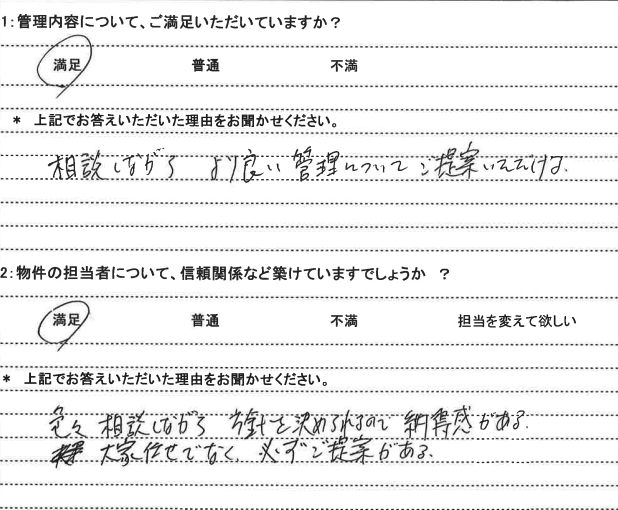 1：管理内容について、ご満足いただいていますか？
満足 普通 不満
* 上記でお答えいただいた理由をお聞かせください。
相談しながら より良い管理について ご提案いただける.
2：物件の担当者について、信頼関係など築けていますでしょうか ？
満足 普通 不満 担当を変えて欲しい
* 上記でお答えいただいた理由をお聞かせください。
色々 相談しながら 方針を決められるので 納得感がある.
大家任せでなく、必ずご提案がある.